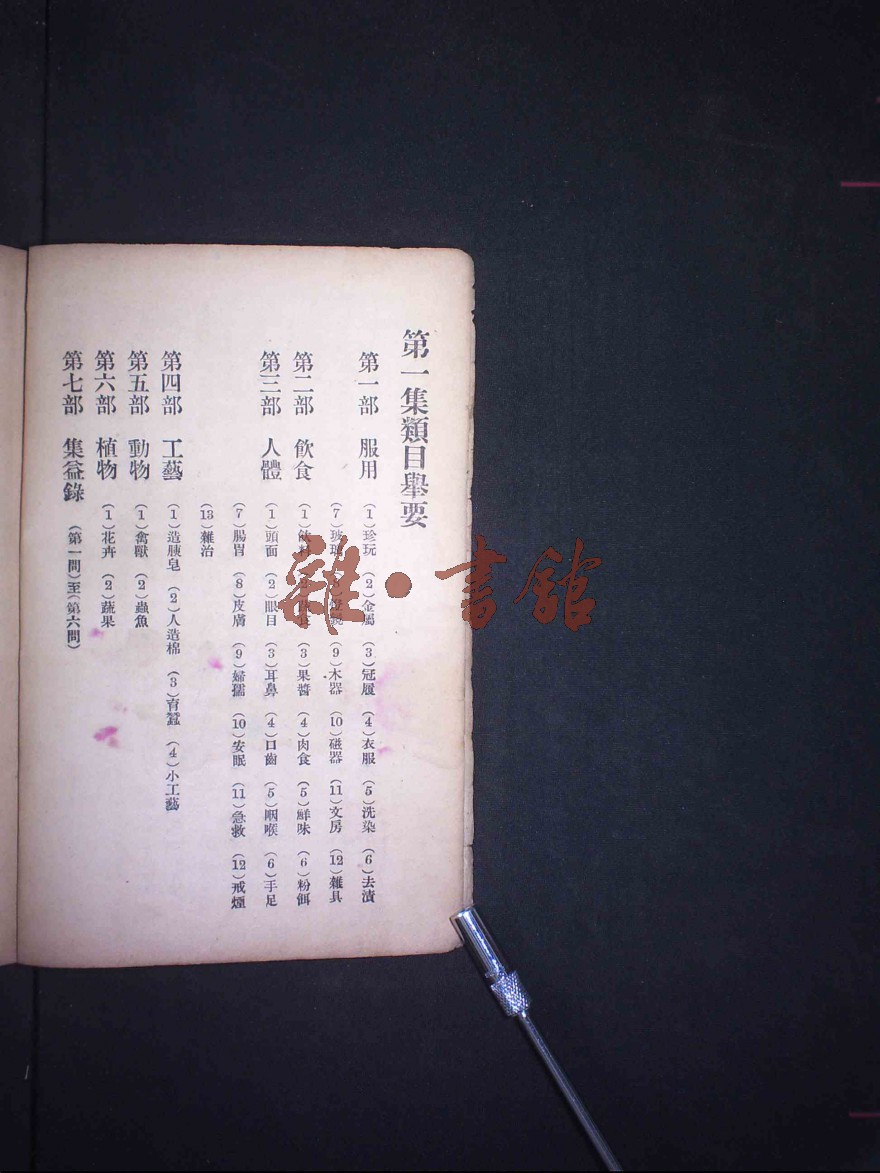 第一集類目舉要
第一部　服用　（1）珍玩　（2）金屬　（3）冠履　（4）衣服　（5）洗染　（6）去漬
（7）玻璃　（9）木器　（10）磁器　（11）文房　（12）雜具
第二部　飲食　（1）飲料　（3）果醬　（4）肉食　（5）鮮味　（6）粉餌
第三部　人體　（1）頭面　（2）眼目　（3）耳鼻　（4）口齒　（5）咽喉　（6）手足
（7）腸胃　（8）皮膚　（9）婦孺　（10）安眠　（11）急救　（12）戒煙
（13）雜治
第四部　工藝　（1）造胰皂　（2）人造棉　（3）育蠶　（4）小工藝
第五部　動物　（1）禽獸　（2）蟲魚
第六部　植物　（1）花卉　（2）蔬果
第七部　集益錄　（第一問）至（第六問）
雜·書館